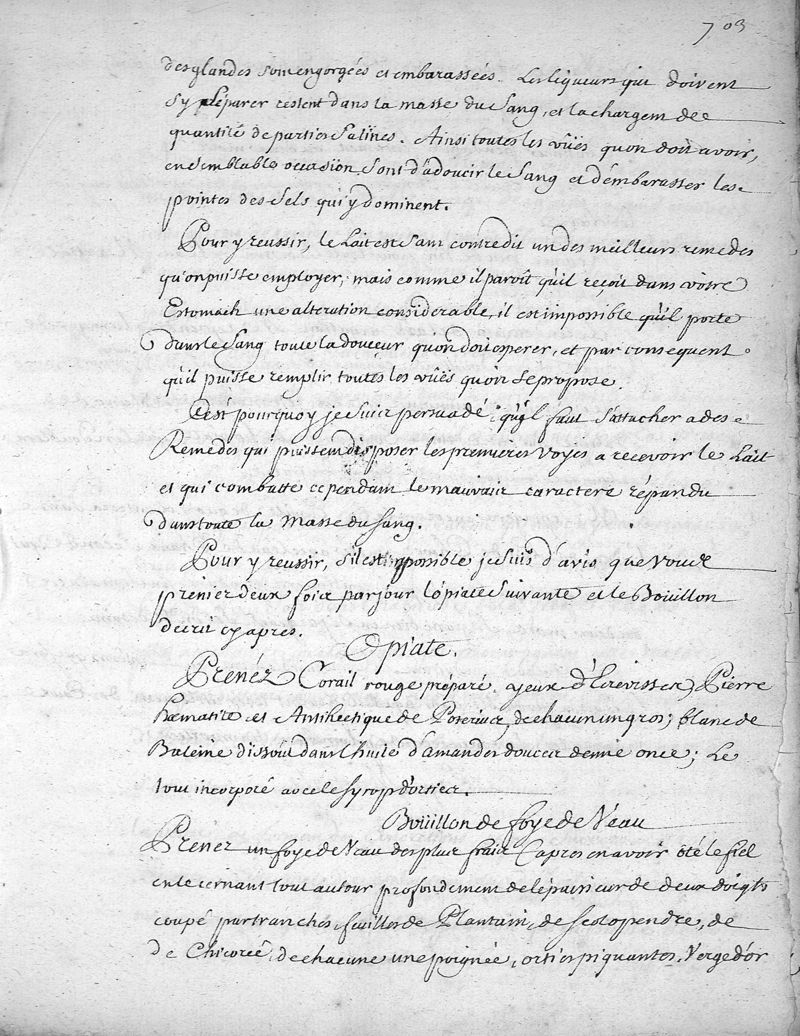 703
des glandes sont engorgées et embarassées. Les liqueurs qui doivent
s'y séparer restent dans la masse du sang, et la chargent de
quantité de parties salines. Ainsi toutes les vûës quon doit avoir,
en semblable occasion, sont d'adoucir le sang et d'embarasser les
pointes des sels qui y dominent.
Pour y reussir, le Lait est sans contredit un des meilleurs remedes
qu'on puisse employer; mais comme il paroît quil reçoit dans vostre
Estomach une alteration considerable, il est impossible quil porte
dans le sang toute la douceur quon doit esperer, et par consequent
quil puisse remplir toutes les vûës quon se propose.
C'est pourquoy je suis persuadé qu'il faut s'attacher a des
Remedes qui puissent disposer les premieres voyes a recevoir le Lait
et qui combatte cependant le mauvais caractere répandu
dans toute la Masse du sang.
Pour y reussir, s'il est possible je suis d'avis que vous
preniez deux fois par jour lopiate suivante et le Boüillon
decrit cy apres.
Opiate.
Prenéz Corail rouge préparé, yeux d'Ecrevisses, Pierre
hœmatite et Antihectique de Poterius, de chacun un gros; blanc de
Baleine dissout dans lhuile d'amandes douces demie once; Le
tout incorporé avec le syrop d'ortier.
Boüillon de foye de Veau
Prenez un foye de Veau des plus frais apres en avoir ôté le fiel
en le cernant tout autour profondement de lépaisseur de deux doigts
coupé par tranches, feuilles de Plantain, de scolopendre, de
de Chicorée, de chacune une poignée, orties piquantes, Verge d'or